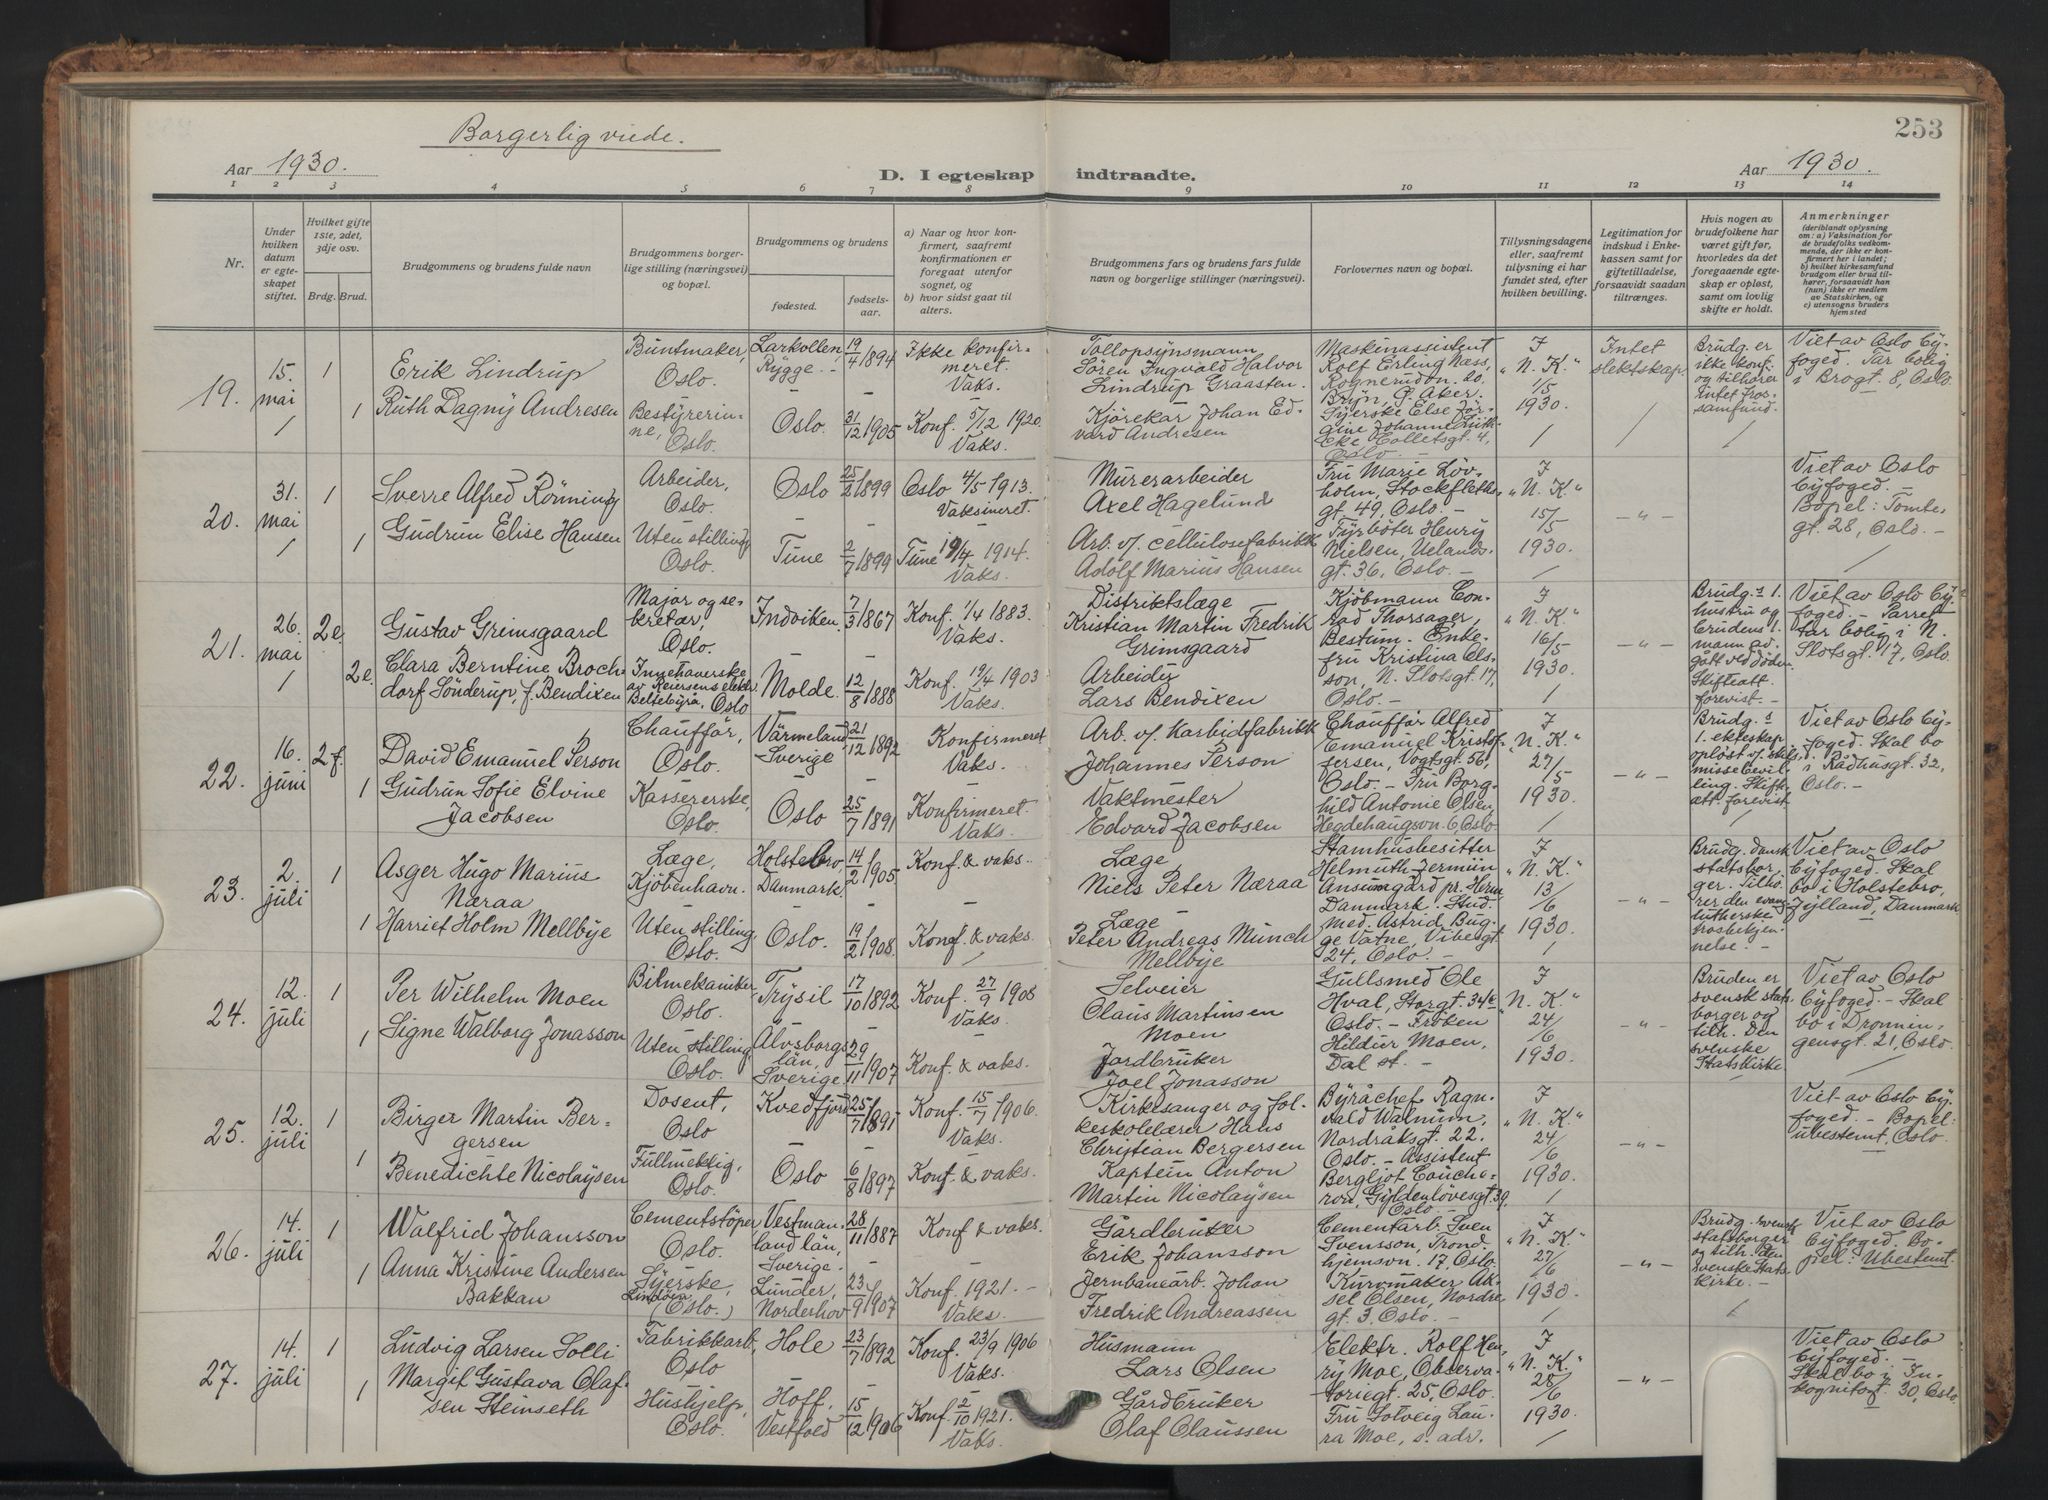 253
Borgerlig viede.
Aar 1930.
D. I egteskap indtraadte.
Aar 1930.
1 2 3 4 5 6 7 8 9 10 11 12 13 14
Nr.
Under hvilken datum er egteskapet stiftet.
Hvilket gifte 1ste, 2det, 3dje osv.
Brdg. Brud.
Brudgommens og brudens fulde navn
Brudgommens borgerlige stilling (næringsvei) og bopæl.
Brudgommens og brudens
fødested.
fødselsaar.
a) Naar og hvor konfirmert, saafremt konfirmationen er foregaat utenfor sognet, og
b) hvor sidst gaat til alters.
Brudgommens fars og brudens fars fulde navn og borgerlige stillinger (næringsvei).
Forlovernes navn og bopæl.
Tillysningsdagene eller, saafremt tillysning ei har fundet sted, efter hvilken bevilling.
Legitimation for indskud i Enkekassen samt for giftetilladelse, forsaavidt saadan tiltrænges.
Hvis nogen av brudefolkene har været gift før, hvorledes da det foregaaende egteskap er opløst, samt om lovlig skifte er holdt.
Anmerkninger
(deriblandt oplysning om: a) Vaksination for de brudefolks vedkommende, der ikke er konfirmert her i landet; b) hvilket kirkesamfund brudgom eller brud tilhører, forsaavidt han (hun) ikke er medlem av Statskirken, og c) utensogns bruders hjemsted
19.
15. mai
1
Erik Lindrup
Buntmaker, Oslo.
Larkollen, Rygge.
19/4 1894
Ikke konfirmeret. Vaks.
Tollopsynsmann Sören Ingvald Halvor Lindrup Graasten.
Maskinassistent Rolf Erling Ness, Rognerudvn. 20, Bryn, Ø. Aker.
I "N. K." 1/5 1930.
Intet slektskap.
Brudg. er ikke konf. og tilhører intet trossamfund.
Viet av Oslo Byfoged. Tar bolig i Brogt. 8, Oslo.
1
Ruth Dagny Andresen
Bestyrerinne, Oslo.
Oslo.
31/12 1905
Konf. 5/12 1920. Vaks.
Kjörekar Johan Edvard Andresen
Syerske Else Jörgine Johanne Lütheke Colletsgt. 4, Oslo.
20.
31. mai
1
Sverre Alfred Rönning
Arbeider, Oslo.
Oslo
25/2 1899
Oslo 4/5 1913. Vaksineret.
Murerarbeider Axel Hagelund
Fru Marie Lövholm, Stockflethsgt. 49, Oslo.
I "N. K." 15/5 1930.
-"-
Viet av Oslo byfoged. - Bopel: Tomtegt. 28, Oslo.
1
Gudrun Elise Hansen
Uten stilling Oslo.
Tune
2/7 1899
Tune 19/4 1914. Vaks.
Arb. v/ cellulosefabrikk Adolf Marius Hansen
Fyrböter Henry Nielsen, Uelandsgt. 36, Oslo.
21.
26. mai
2e.
Gustav Grimsgaard
Major og sekretær, Oslo.
Indviken
7/3 1867
Konf. 1/4 1883. Vaks.
Distriktslæge Kristian Martin Fredrik Grimsgaard
Kjöbmann Conrad Thorsager, Bestum.
I "N. K." 16/5 1930.
-"-
Brudg. s 1. hustru og brudens 1. mann avgått ved döden. Skifteatt. forevist.
Viet av Oslo byfoged - Parret tar bolig i N. Slotsgt. 17, Oslo.
2e.
Clara Berntine Brochdorf Sönderup, f. Bendixen
Innehaverske av Reiersens elektr. Beltebyrå, Oslo
Molde
12/8 1888
Konf. 19/4 1903 Vaks.
Arbeider Lars Bendixen
Enkefru Kristina Olsson, N. Slotsgt. 17, Oslo.
22.
16. juni
2f.
David Emanuel Person
Chaufför, Oslo.
Värmeland Sverige
21/12 1892
Konfirmeret Vaks.
Arb. v/ Karbidfabrikk Johannes Person
Chauffør Alfred Emanuel Kristoffersen, Vogtsgt. 56, Oslo.
I "N. K." 27/5 1930.
-"-
Brudg. s 1. ekteskap oplöst v/ skilsmissebevilling. Skifteatt. forevist
Viet av Oslo byfoged. Skal bo i Rådhusgt. 32, Oslo.
1
Gudrun Sofie Elvine Jacobsen
Kassererske, Oslo.
Oslo
25/7 1891
Konfirmeret Vaks.
Vaktmester Edvard Jacobsen
Fru Borghild Antonie Olsen, Hegdehaugsvn. 6, Oslo
23.
2. juli
1
Asger Hugo Marius Næraa
Læge, Kjöbenhavn.
Holstebro, Danmark.
14/2 1905
Konf. & vaks.
Læge Niels Peter Næraa
Stamhusbesitter Helmuth Jermiin Ansumgård pr. Hjerm Danmark.
I "N. K." 13/6 1930.
-"-
Brudg. dansk statsborger. Tilhörer den evang. lutherske trosbekjennelse.
Viet av Oslo byfoged. Skal bo i Holstebro, Jylland, Danmark
1
Harriet Holm Mellbye
Uten stilling, Oslo.
Oslo.
19/2 1908.
Konf. & vaks.
Læge Peter Andreas Munch Mellbye
Stud. med. Astrid Bugge Vatne, Vibesgt. 24, Oslo.
24.
12. juli
1
Per Wilhelm Moen
Bilmekaniker Oslo.
Trysil
17/10 1892
Konf. 27/9 1908 Vaks.
Selveier Claus Martinsen Moen
Gullsmed Ole Hval, Storgt. 34c Oslo.
I "N. K." 24/6 1930.
-"-
Bruden er svensk statsborger og tilh. den svenske Statskirke
Viet av Oslo byfoged. - Skal bo i Dronningensgt. 21, Oslo.
1
Signe Walborg Jonasson
Uten stilling Oslo.
Älvsborgs län, Sverige.
29/11 1907
Konf. & vaks.
Jordbruker Joel Jonasson
Fröken Hildur Moen, Dal st.
25.
12. juli
1
Birger Martin Bergersen
Dosent, Oslo
Kvedfjord
25/7 1891
Konf. 15/7 1906. Vaks.
Kirkesanger og folkeskolelærer Hans Christian Bergersen
Byråchef Ragnvald Walnum, Nordråksgt. 22. Oslo.
I "N. K." 24/6 1930.
-"-
Viet av Oslo byfoged. - Bopel: ubestemt, Oslo.
1
Benedichte Nicolaysen
Fullmektig, Oslo.
Oslo
6/8 1897
Konf. & vaks.
Kaptein Anton Martin Nicolaysen
Assistent Bergljot Coucheron, Gyldenlövesgt. 39, Oslo.
26.
14. juli
1
Walfrid Johansson
Cementstöper Oslo.
Vestmanland län, Sverige.
28/11 1887
Konf. & vaks.
Gårdbruker Erik Johansson
Cementarb. Sven Svensson, Trondhjemsvn. 17, Oslo.
I "N. K." 27/6 1930.
-"-
Brudg. svensk statsborger og tilh. den svenske Statskirke.
Viet av Oslo byfoged. Bopel: Ubestemt.
1
Anna Kristine Andersen Bakkan
Syerske, (Oslo.)
Lunder, Norderhov
23/9 1907
Konf. 1921. Vaks.
Jernbanearb. Johan Fredrik Andreassen
Kurvmaker Aksel Olsen, Nordregt. 3, Oslo.
27.
14. juli
1
Ludvig Larsen Solli
Fabrikkarb. Oslo
Hole
23/7 1892
Konf. 23/9 1906 Vaks.
Husmann Lars Olsen
Elektr. Rolf Henry Moe, Observatoriegt. 25, Oslo.
I "N. K." 28/6 1930.
-"-
Viet av Oslo byfoged. - Skal bo i Inkognitogt. 30, Oslo.
1
Margit Gustava Olafsen Steinseth
Hushjelp, Oslo.
Hoff, Vestfold
15/12 1906
Konf. 2/10 1921. Vaks.
Gårdbruker Olaf Claussen
Fru Solveig Laura Moe, s. adr.